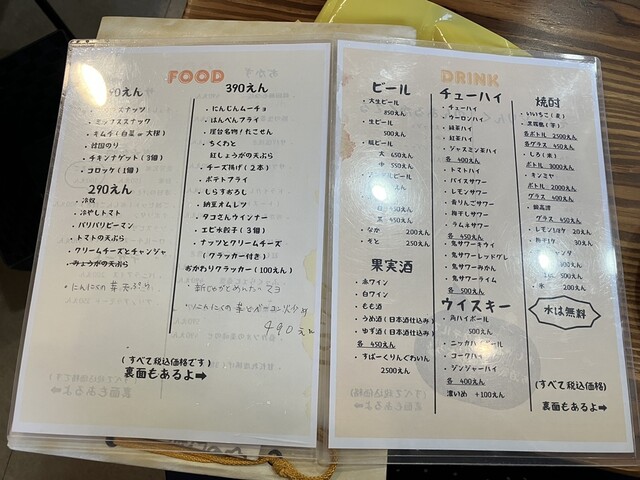 FOOD
0えん
ナッツ
ミックススナック
・キムチ(白菜 or 大根)
・韓国のり
・チキンナゲット(3個)
・コロッケ(1個)
290えん
・冷奴
・冷やしトマト
・パリパリピーマン
・トマトの天ぷら
・クリームチーズとチャンジャ
・みょうがの天ぷら
・にんにくの芽天ぷら
390えん
・にんじんムーチョ
・はんぺんフライ
・屋台名物!たこせん
・ちくわと
紅しょうがの天ぷら
・チーズ揚げ(2本)
・ポテトフライ
・しらすおろし
・納豆オムレツ
・タコさんウインナー
・エビ水餃子(3個)
・ナッツとクリームチーズ
(クラッカー付き)
おかわりクラッカー(100えん)
・にんにくの芽とベーコン炒め
490えん
(すべて税込価格です)
裏面もあるよ➡
DRINK
ビール
・大生ビール
850えん
・生ビール
500えん
・瓶ビール
大 650えん
中 550えん
450えん
黒 450えん
・なか 200えん
・そと 250えん
果実酒
・赤ワイン
・白ワイン
・もも酒
・うめ酒(日本酒仕込み)
・ゆず酒(日本酒仕込み)
各 450えん
・すぱーくりんぐわいん
2500えん
チューハイ
・チューハイ
・ウーロンハイ
・緑茶ハイ
・紅茶ハイ
・ジャスミン茶ハイ
各 400えん
・トマトハイ
・バイスサワー
・レモンサワー
・青りんごサワー
・梅干しサワー
・ラムネサワー
各 450えん
・鬼サワーオウイ
・鬼サワーレッドグレ
・鬼サワーみかん
・鬼サワーライム
各 500えん
ウイスキー
・角ハイボール
500えん
・ニッカハイボール
・コークハイ
・ジンジャーハイ
各 400えん
濃いめ +100えん
焼酎
・いいちこ(麦)
・黒霧島(芋)
各ボトル 2500えん
各グラス 450えん
・しろ(米)
ボトル 3000えん
・キンミヤ
ボトル 2000えん
グラス 400えん
・鍛高譚
グラス 450えん
・レモン1/8ケ 20えん
・梅干1ケ 30えん
500えん
・氷 200えん
水は無料
(すべて税込価格)
裏面もあるよ➡